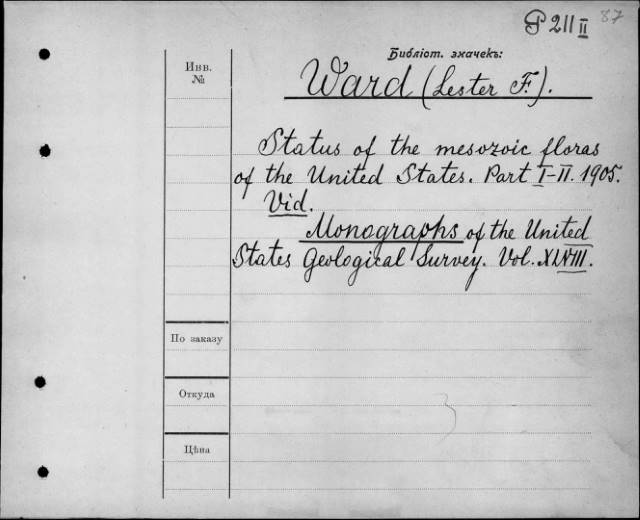 P 211 II 87
Библіот. значекъ:
Инв.
№
Ward (Lester F.).
Status of the mesozoic floras
of the United States. Part I-II. 1905.
Vid.
Monographs of the United
States Geological Survey. Vol. XLVIII.
По заказу
Откуда
Цѣна